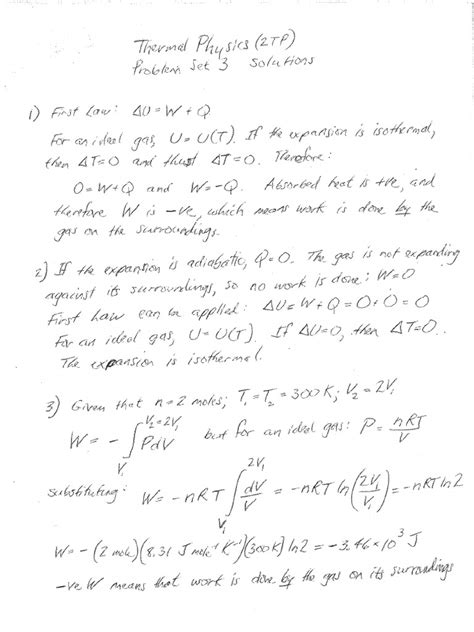 Thermal Physics (2TP)
Problem Set 3 Solutions
1) First Law: ΔU = W + Q
For an ideal gas, U = U(T). If the expansion is isothermal,
then ΔT=0 and thus ΔT=0. Therefore:
0 = W+Q and W=-Q. Absorbed heat is +ve, and
therefore W is -ve, which means work is done by the
gas on the surroundings.
2) If the expansion is adiabatic, Q=0. The gas is not expanding
against its surroundings, so no work is done: W=0
First Law can be applied: ΔU = W + Q = 0 + 0 = 0
For an ideal gas, U = U(T). If ΔU=0, then ΔT=0.
The expansion is isothermal.
3) Given that n = 2 moles; T₁ = T₂ = 300K; V₂ = 2V₁
W = - ∫_{V₁}^{V₂=2V₁} PdV but for an ideal gas: P = nRT/V
substituting: W = -nRT ∫_{V₁}^{2V₁} dV/V = -nRT ln(2V₁/V₁) = -nRT ln2
W = -(2 mole)(8.31 J mole⁻¹ K⁻¹)(300K) ln2 = -3.46 × 10³ J
-ve W means that work is done by the gas on its surroundings